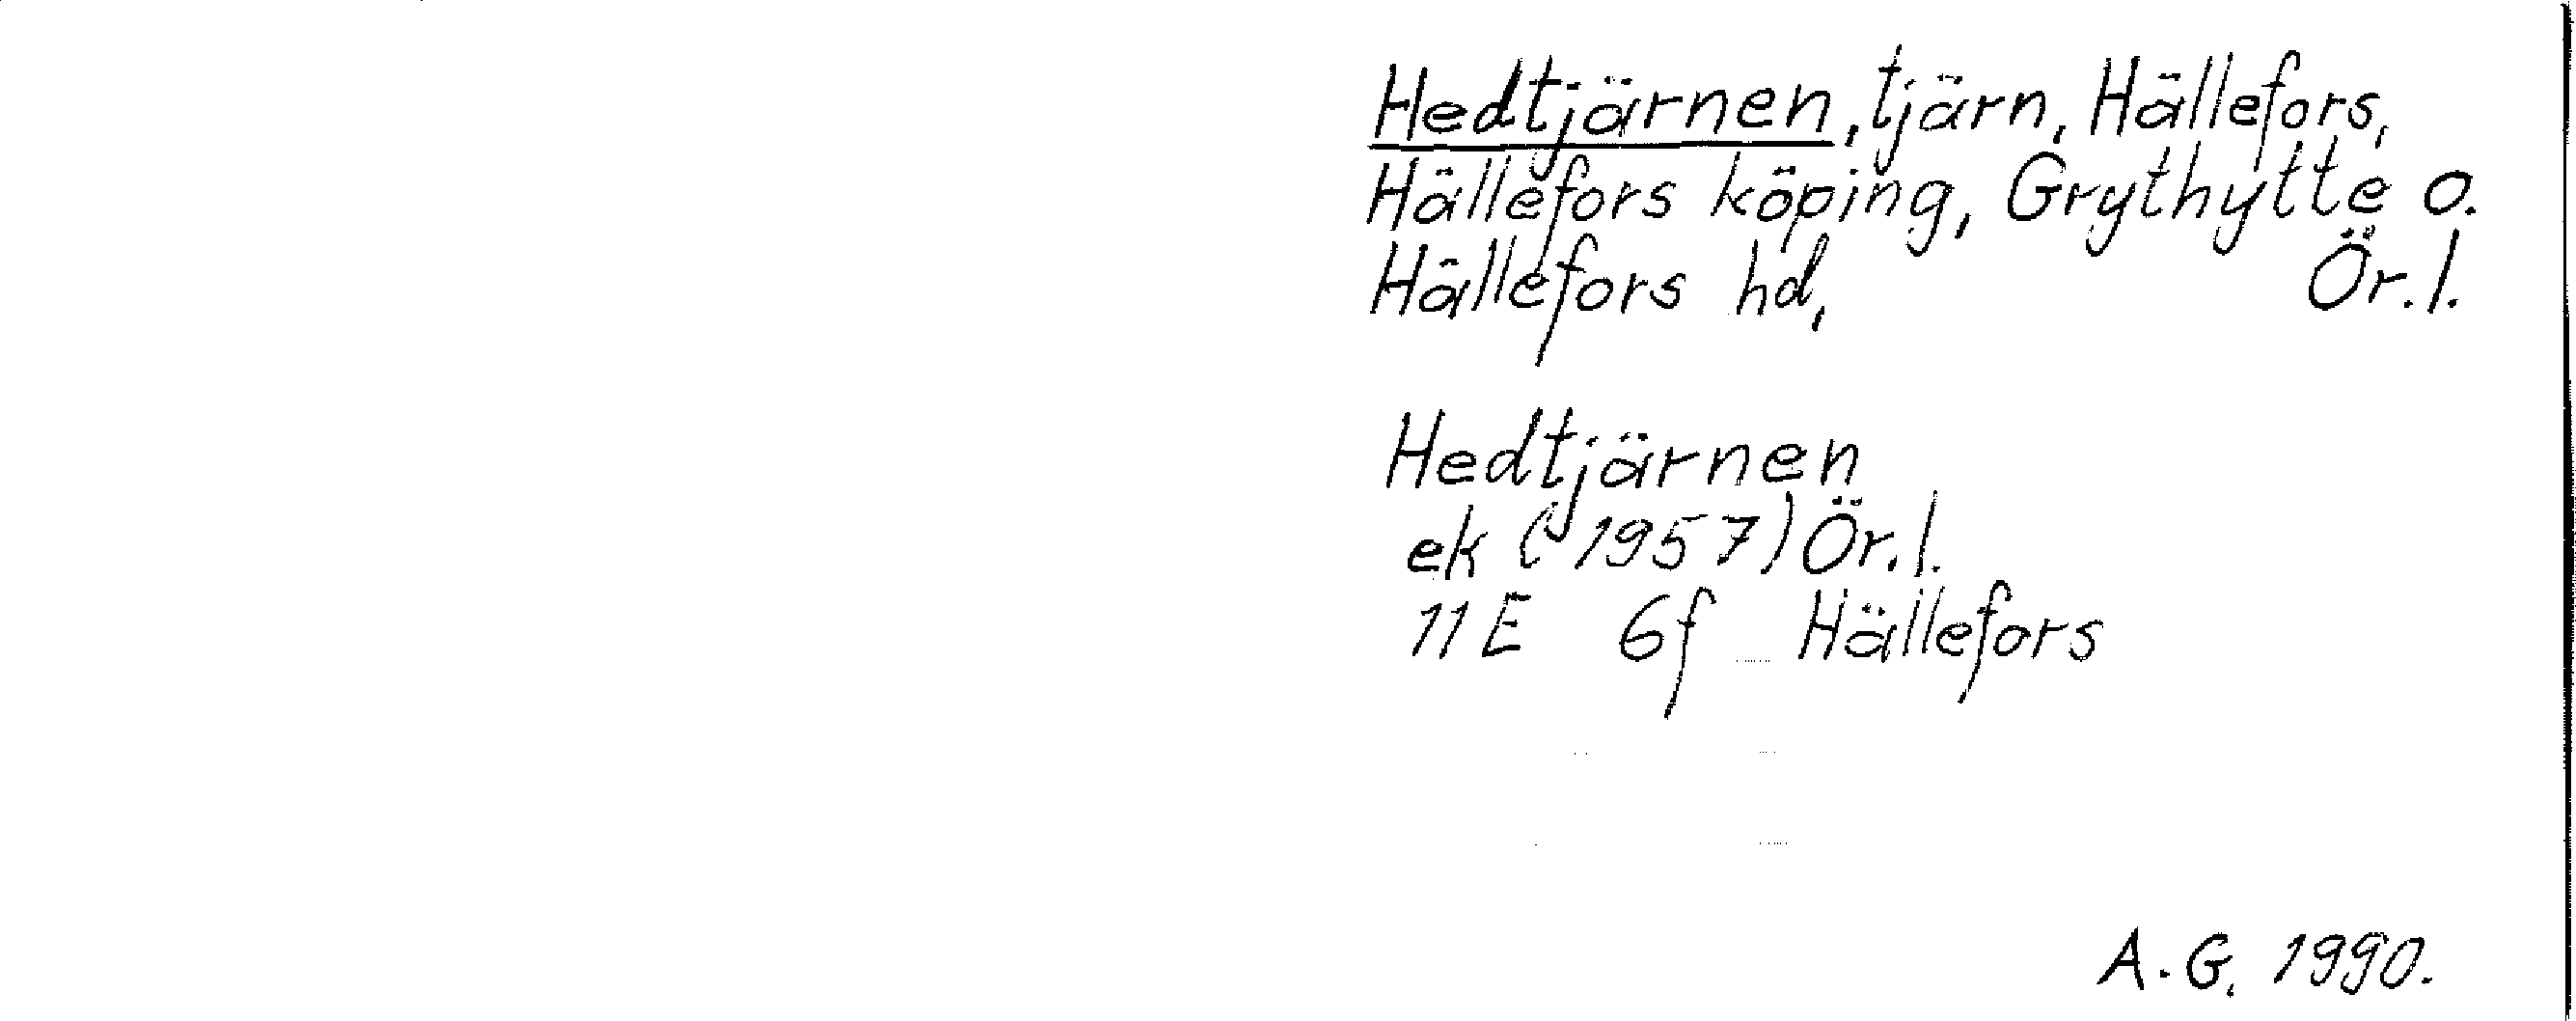 Hedtjärnen, tjärn, Hällefors,
Hällefors köping, Grythytte o.
Hällefors hd, Ör.l.
Hedtjärnen
ek (1957) Ör.l.
11E 6f Hällefors
A.G. 1990.